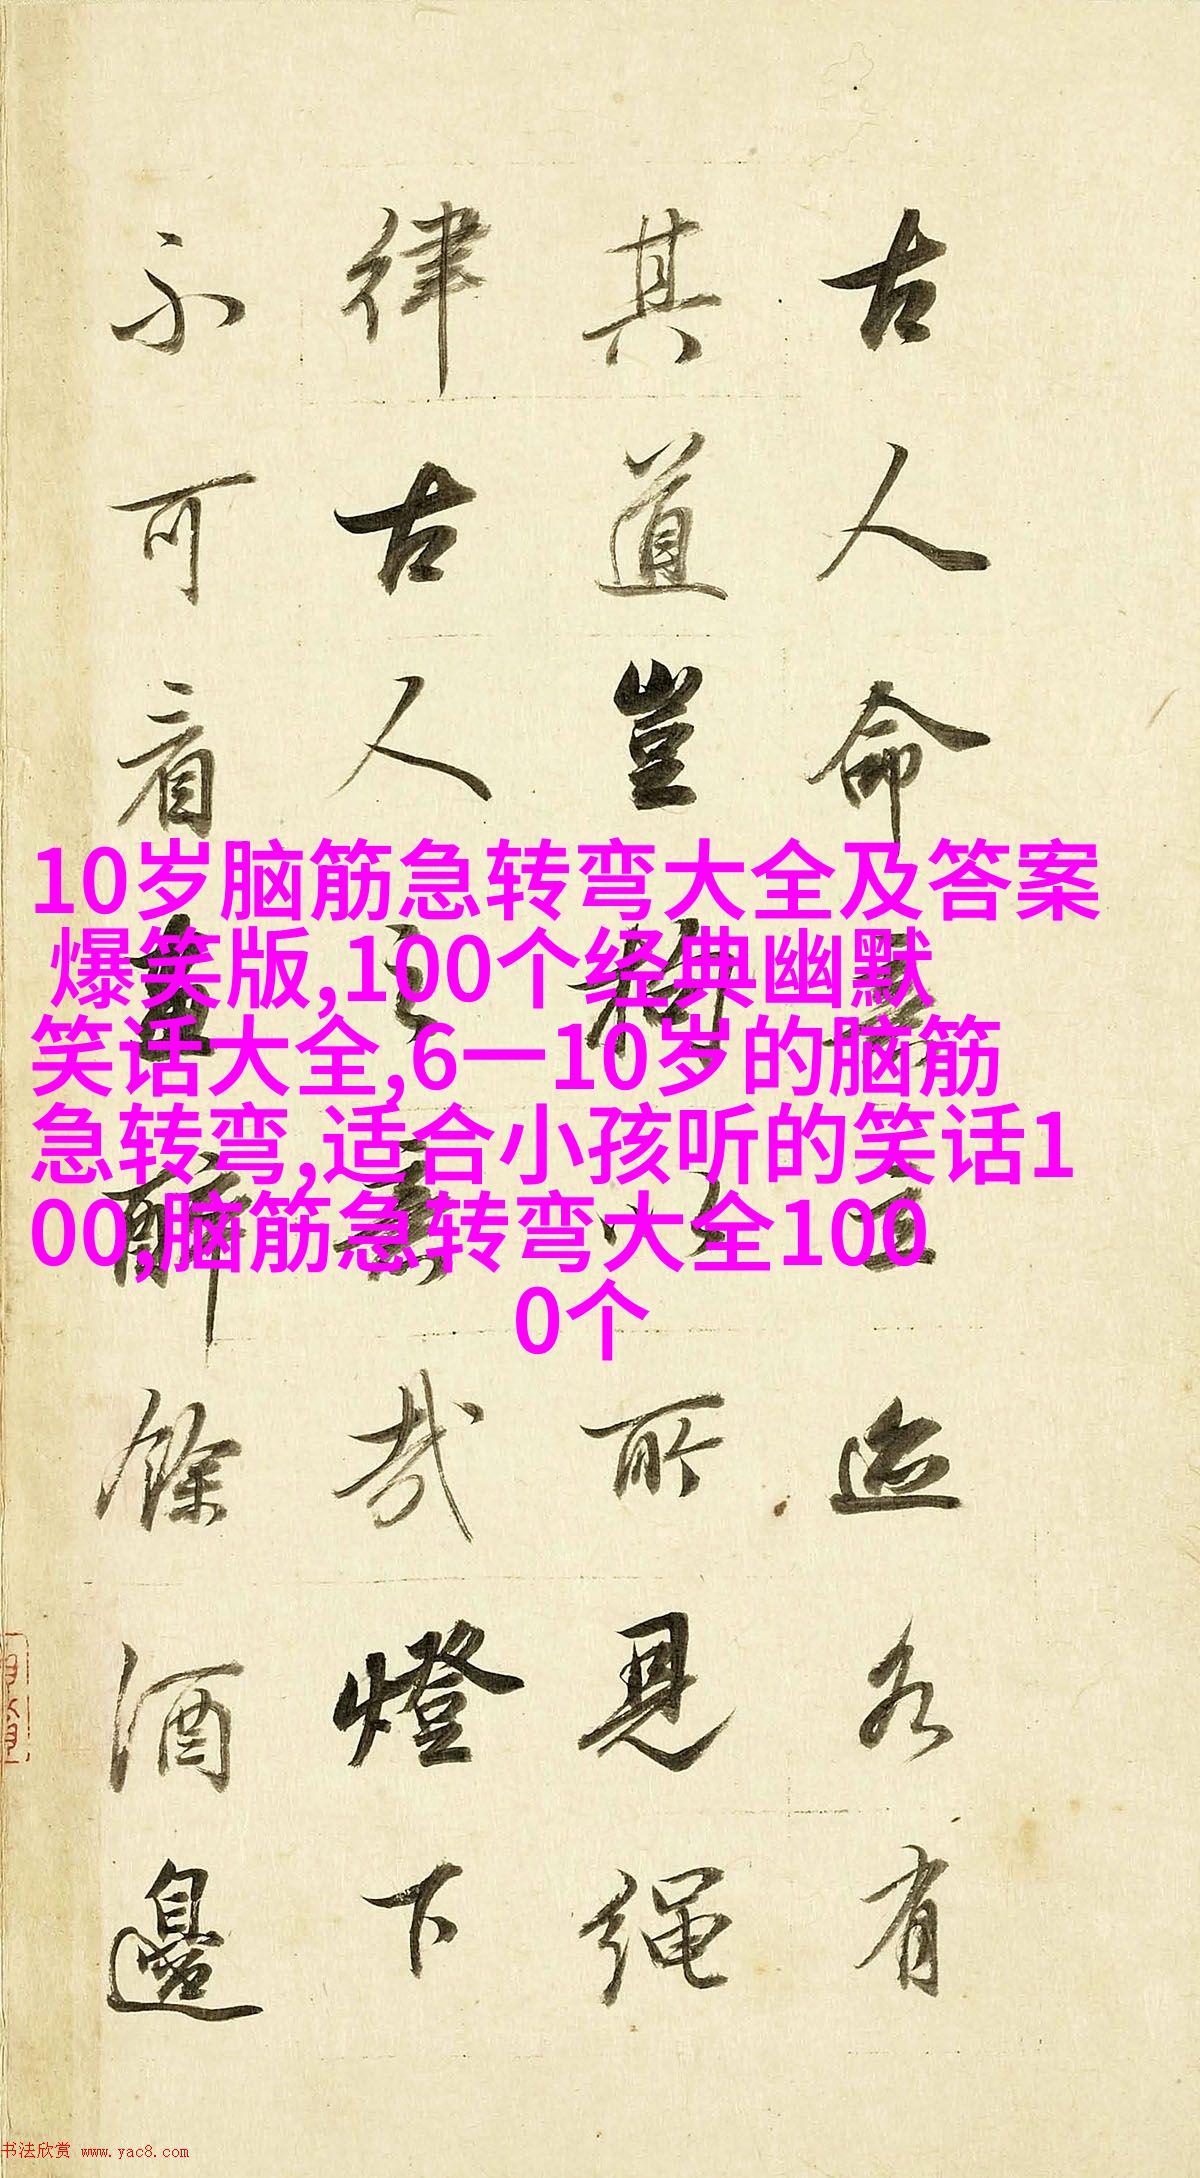 古人命意立迹各有
其道豈拘以所見繩
律古人之意哉燈下
不可看畫醉餘酒邊
10岁脑筋急转弯大全及答案
爆笑版,100个经典幽默
笑话大全,6一10岁的脑筋
急转弯,适合小孩听的笑话1
00,脑筋急转弯大全100
0个
书法欣赏 www.yac8.com